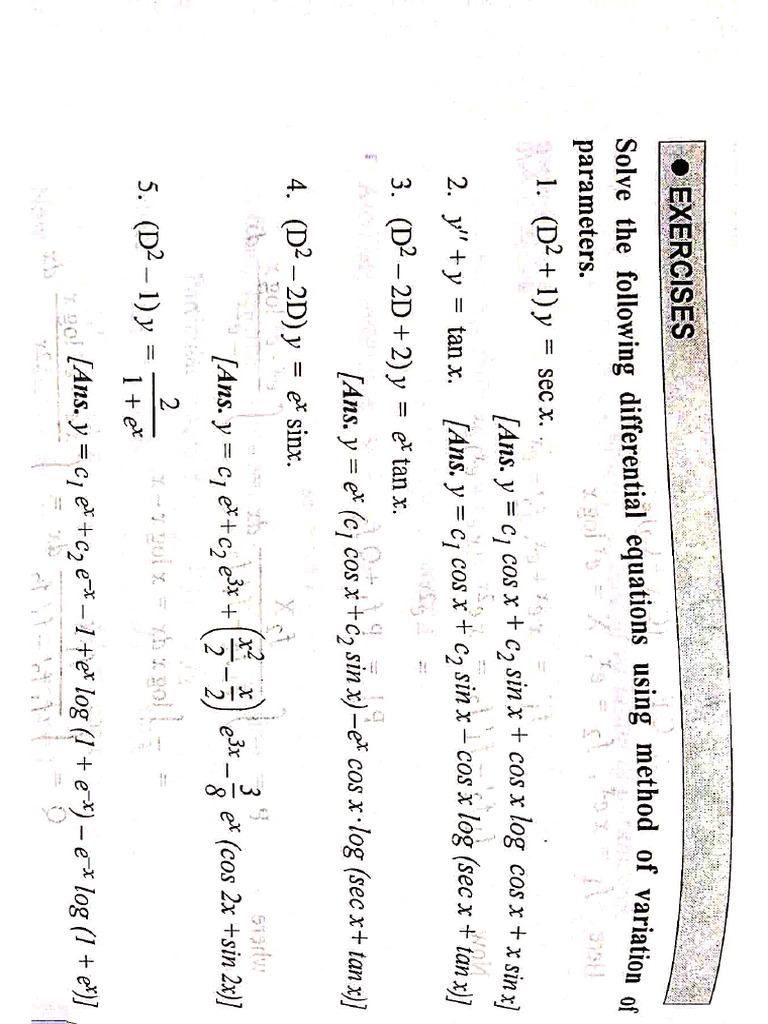 ● EXERCISES
Solve the following differential equations using method of variation of
parameters.
1. (D² + 1) y = sec x.
[Ans. y = c₁ cos x + c₂ sin x + cos x log cos x + x sin x]
2. y″ + y = tan x. [Ans. y = c₁ cos x + c₂ sin x – cos x log (sec x + tan x)]
3. (D² – 2D + 2) y = eˣ tan x.
[Ans. y = eˣ (c₁ cos x + c₂ sin x) – eˣ cos x · log (sec x + tan x)]
4. (D² – 2D) y = eˣ sinx.
[Ans. y = c₁ eˣ + c₂ e³ˣ + (x²/2 – x/2) e³ˣ – 3/8 eˣ (cos 2x + sin 2x)]
5. (D² – 1) y = 2/(1 + eˣ)
[Ans. y = c₁ eˣ + c₂ e⁻ˣ – 1 + eˣ log (1 + e⁻ˣ) – e⁻ˣ log (1 + eˣ)]